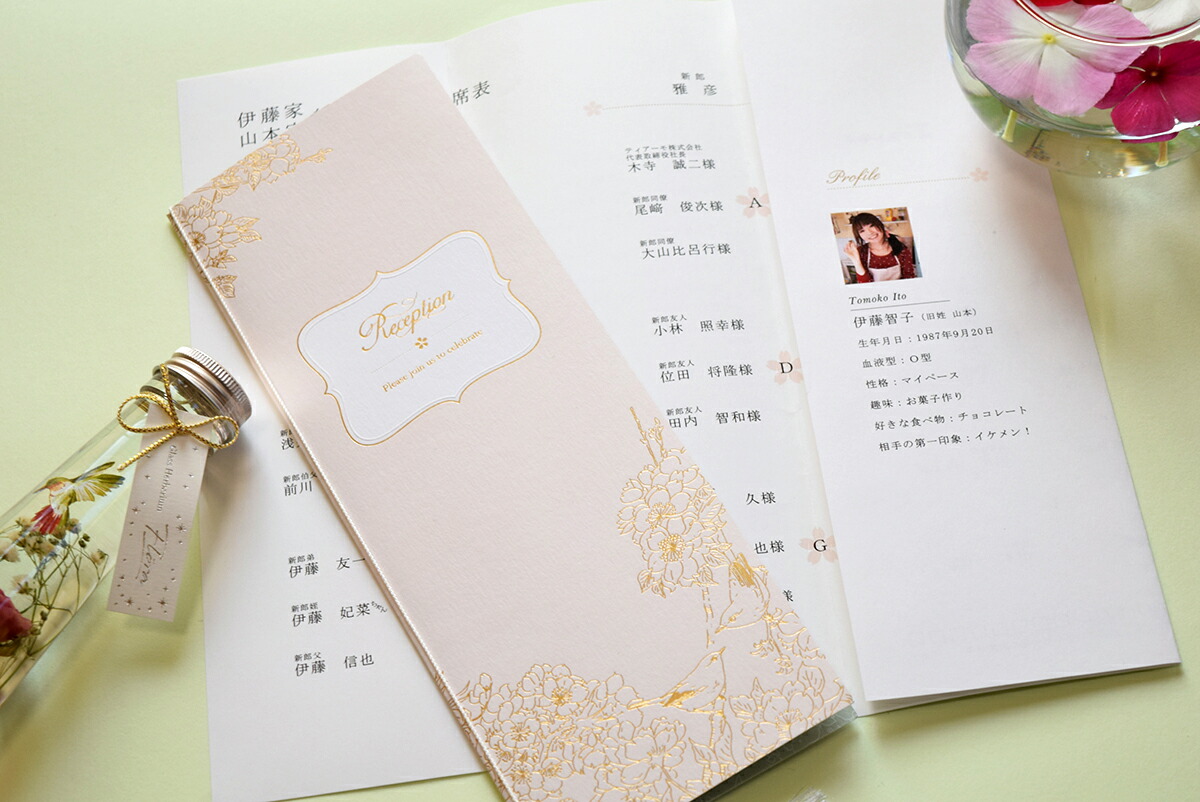 伊藤家
山本
席表
新郎
雅彦
ティアーモ株式会社
代表取締役社長
木寺 誠二様
新郎同僚
尾﨑 俊次様
A
新郎同僚
大山比呂行様
新郎友人
小林 照幸様
新郎友人
位田 将隆様
D
新郎友人
田内 智和様
久様
也様
G
新郎伯父
前川
新郎弟
伊藤 友一
新郎姪
伊藤 妃菜
新郎父
伊藤 信也
Reception
Please join us to celebrate
Glass Herbarium
Flora
Profile
Tomoko Ito
伊藤智子(旧姓 山本)
生年月日:1987年9月20日
血液型:O型
性格:マイペース
趣味:お菓子作り
好きな食べ物:チョコレート
相手の第一印象:イケメン!